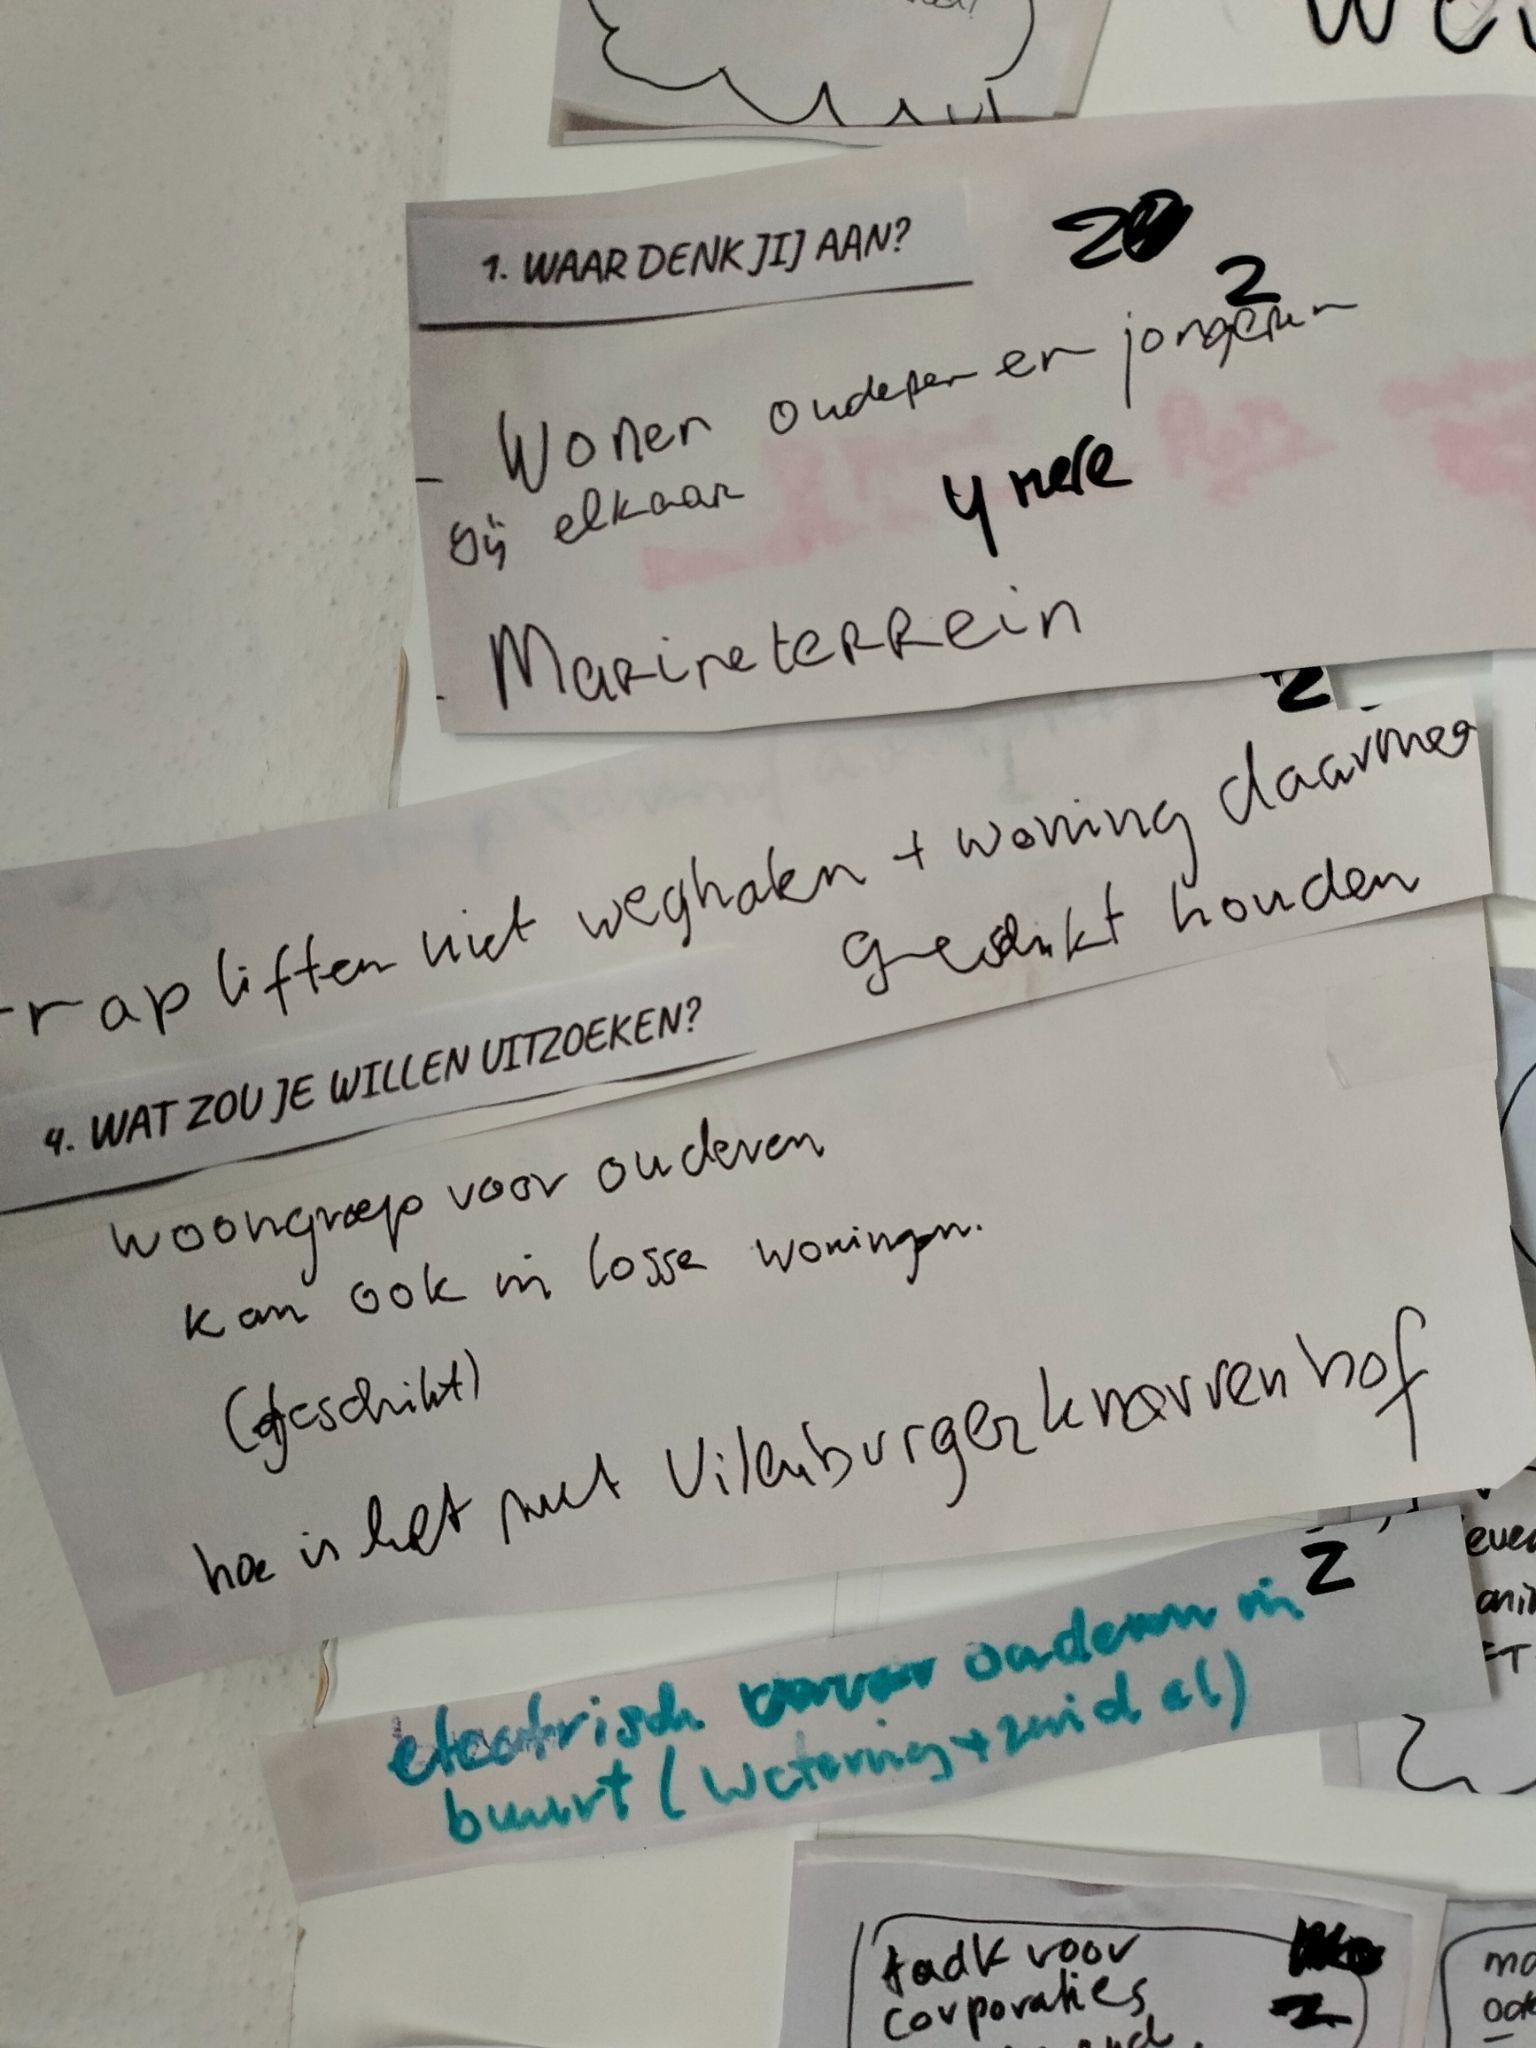 1. WAAR DENK JIJ AAN?
2
2
- Wonen ouderen en jongeren
bij elkaar
4 mere
- Marineterrein
2
trapliften niet weghalen + woning daarmee
geschikt houden
4. WAT ZOU JE WILLEN UITZOEKEN?
woongroep voor ouderen
kan ook in losse woningen.
(geschikt)
hoe is het met Uilenburgerknarrenhof
2
electrisch vervoer ouderen in
buurt (Watering + zuid al)
taak voor
corporaties
2